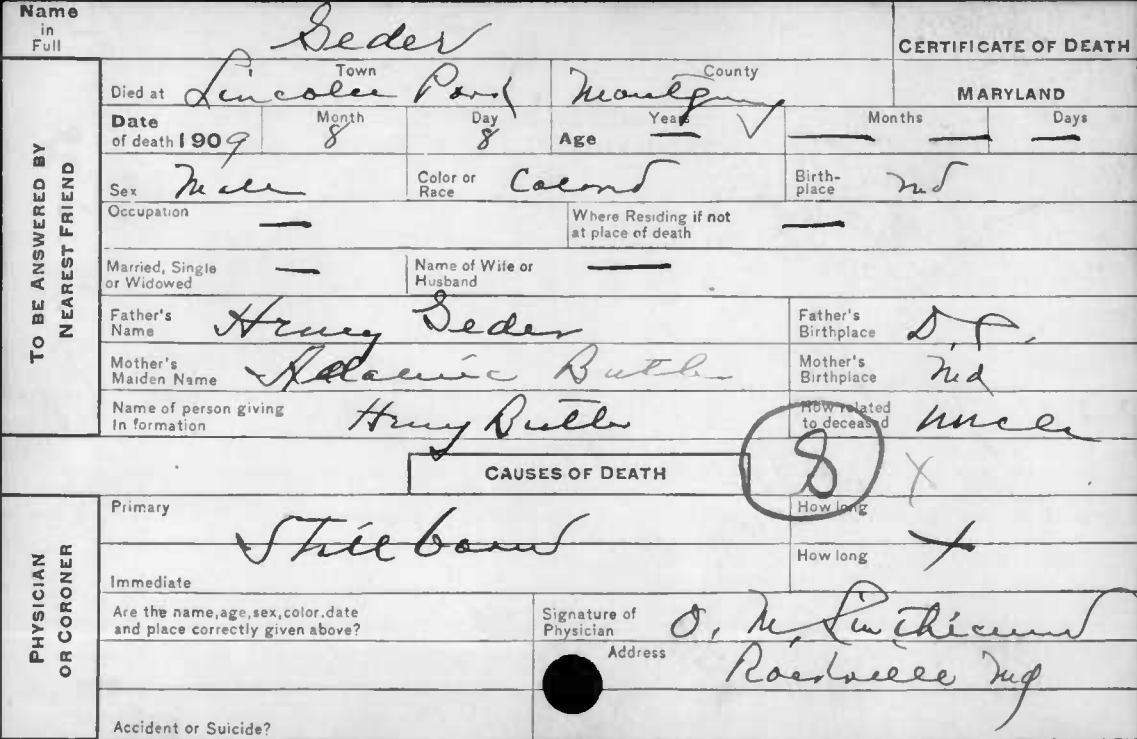 Name in Full Seder
CERTIFICATE OF DEATH
TO BE ANSWERED BY NEAREST FRIEND
Died at Lincoln Park Town Montgomery County MARYLAND
Date of death 1909 Month 8 Day 8 Age Years — Months — — Days —
Sex Male Color or Race Colored Birth-place Md
Occupation — Where Residing if not at place of death —
Married, Single or Widowed — Name of Wife or Husband —
Father's Name Henry Seder Father's Birthplace D.C.
Mother's Maiden Name Butler Mother's Birthplace Md
Name of person giving In formation Henry Butler How related to deceased Uncle
CAUSES OF DEATH 8 X
PHYSICIAN OR CORONER
Primary Still born How long
Immediate How long
Are the name, age, sex, color, date and place correctly given above? Signature of Physician O. M. Linthicum
Address Rockville Md
Accident or Suicide?